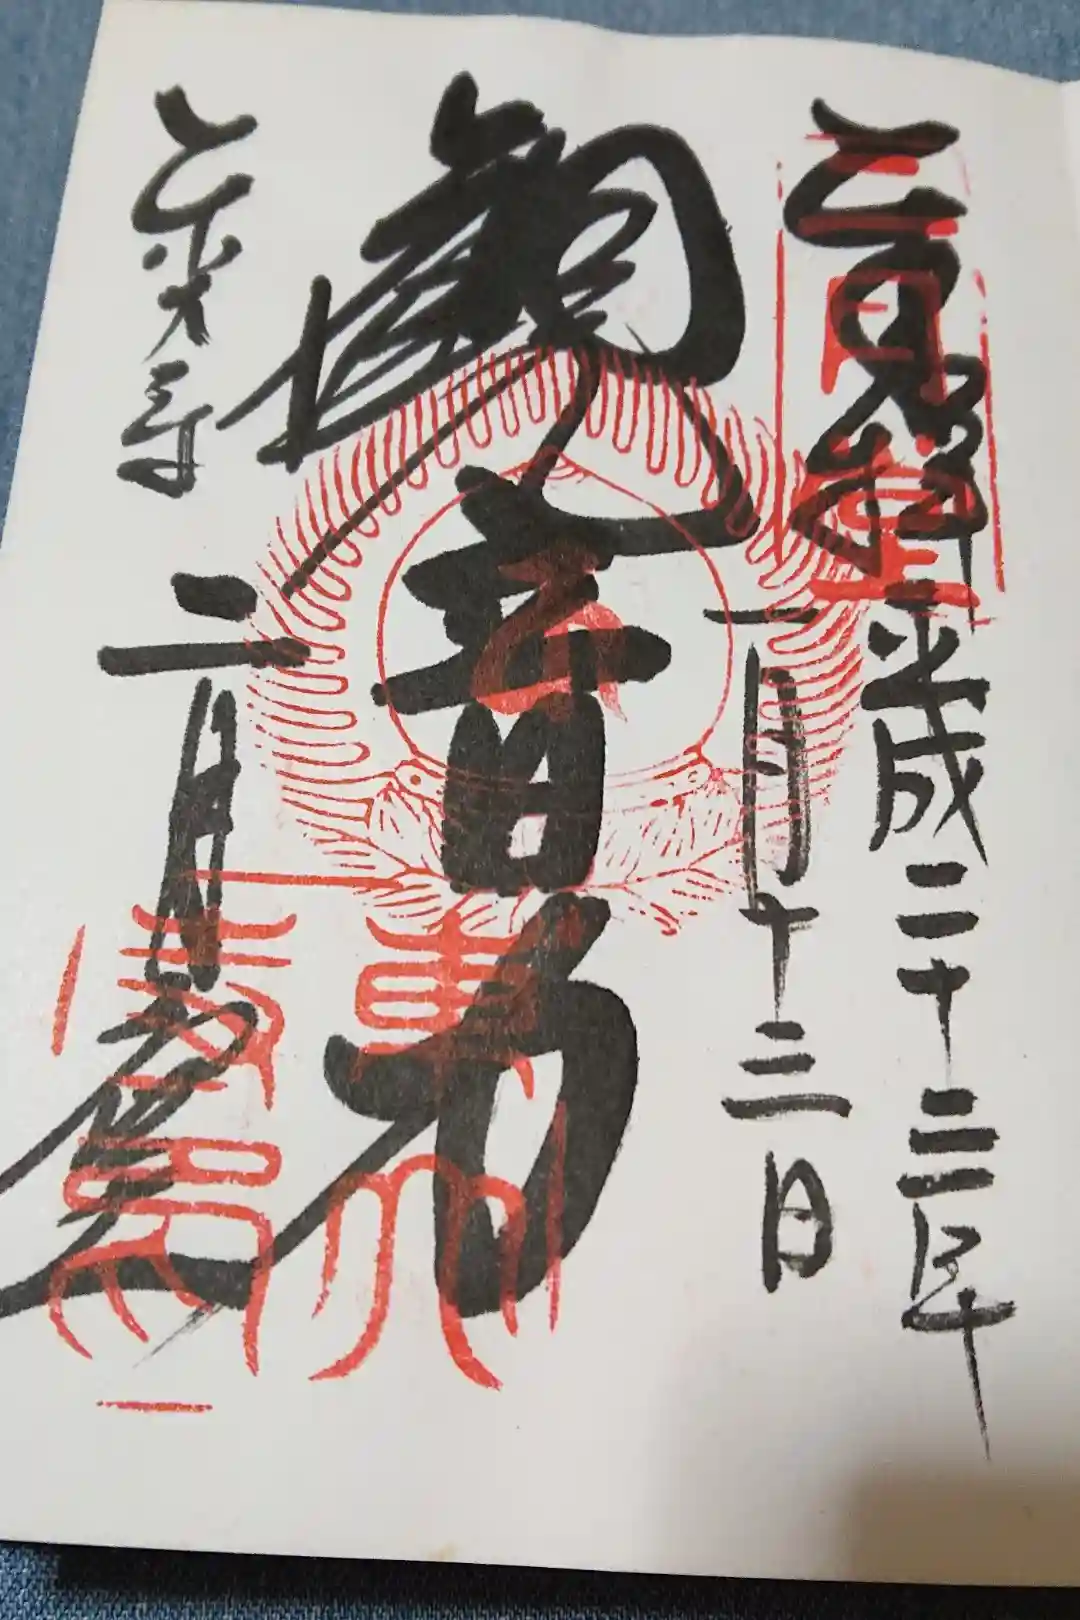 二月堂
平成二十三年
一月十三日
觀音力
東大寺
二月堂